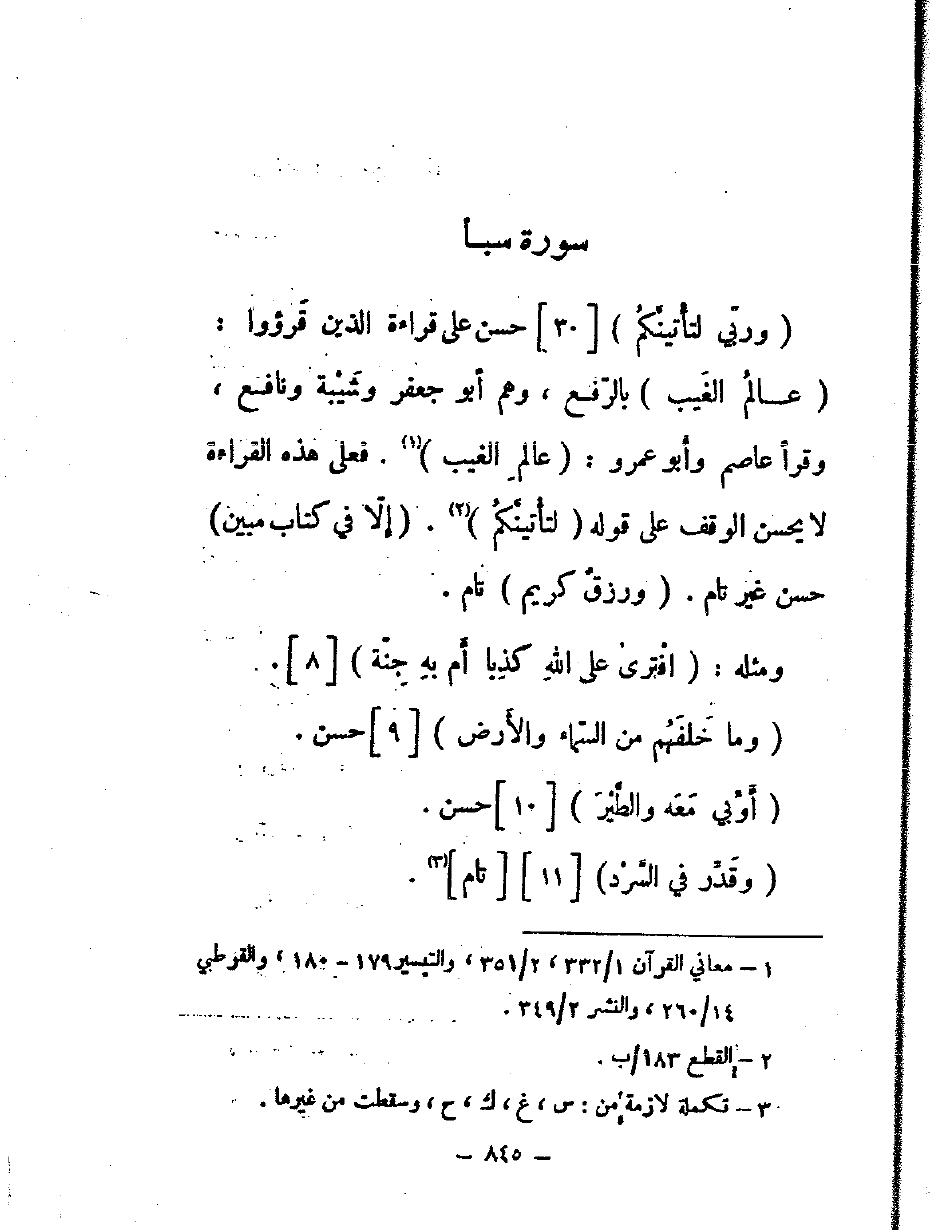 سورة سبأ
( وربّي لتأتينَّكمُ ) [ ٣٠ ] حسن على قراءة الذين قَرؤوا :
( عــالمُ الغَيب ) بالرّفـع ، وهم أبو جعفر وشَيْبة ونافـع ،
وقرأ عاصم وأبو عمرو : ( عالمِ الغيب )(١) . فعلى هذه القراءة
لا يحسن الوقف على قوله ( لتأتينَّكمُ )(٢) . ( إلّا في كتاب مبين)
حسن غير تام . ( ورزقٌ كريم ) تام .
ومثله : ( افْترىٰ على اللهِ كذِبا أَم بهِ جِنّة ) [ ٨ ] .
( وما خَلفَهُم من السّماء والأَرض ) [ ٩ ] حسن .
( أَوِّبي مَعَه والطَّيْرَ ) [ ١٠ ] حسن .
( وقَدِّر في السَّرْد) [ ١١ ] [ تام ](٣) .
١ – معاني القرآن ٣٣٢/١ ، ٣٥١/٢ ، والتيسير ١٧٩ – ١٨٠ ، والقرطبي
٢٦٠/١٤ ، والنشر ٣٤٩/٢ .
٢ – القطع ١٨٣/ب .
٣ – تكملة لازمة من : س ، غ ، ك ، ح ، وسقطت من غيرها .
– ٨٤٥ –